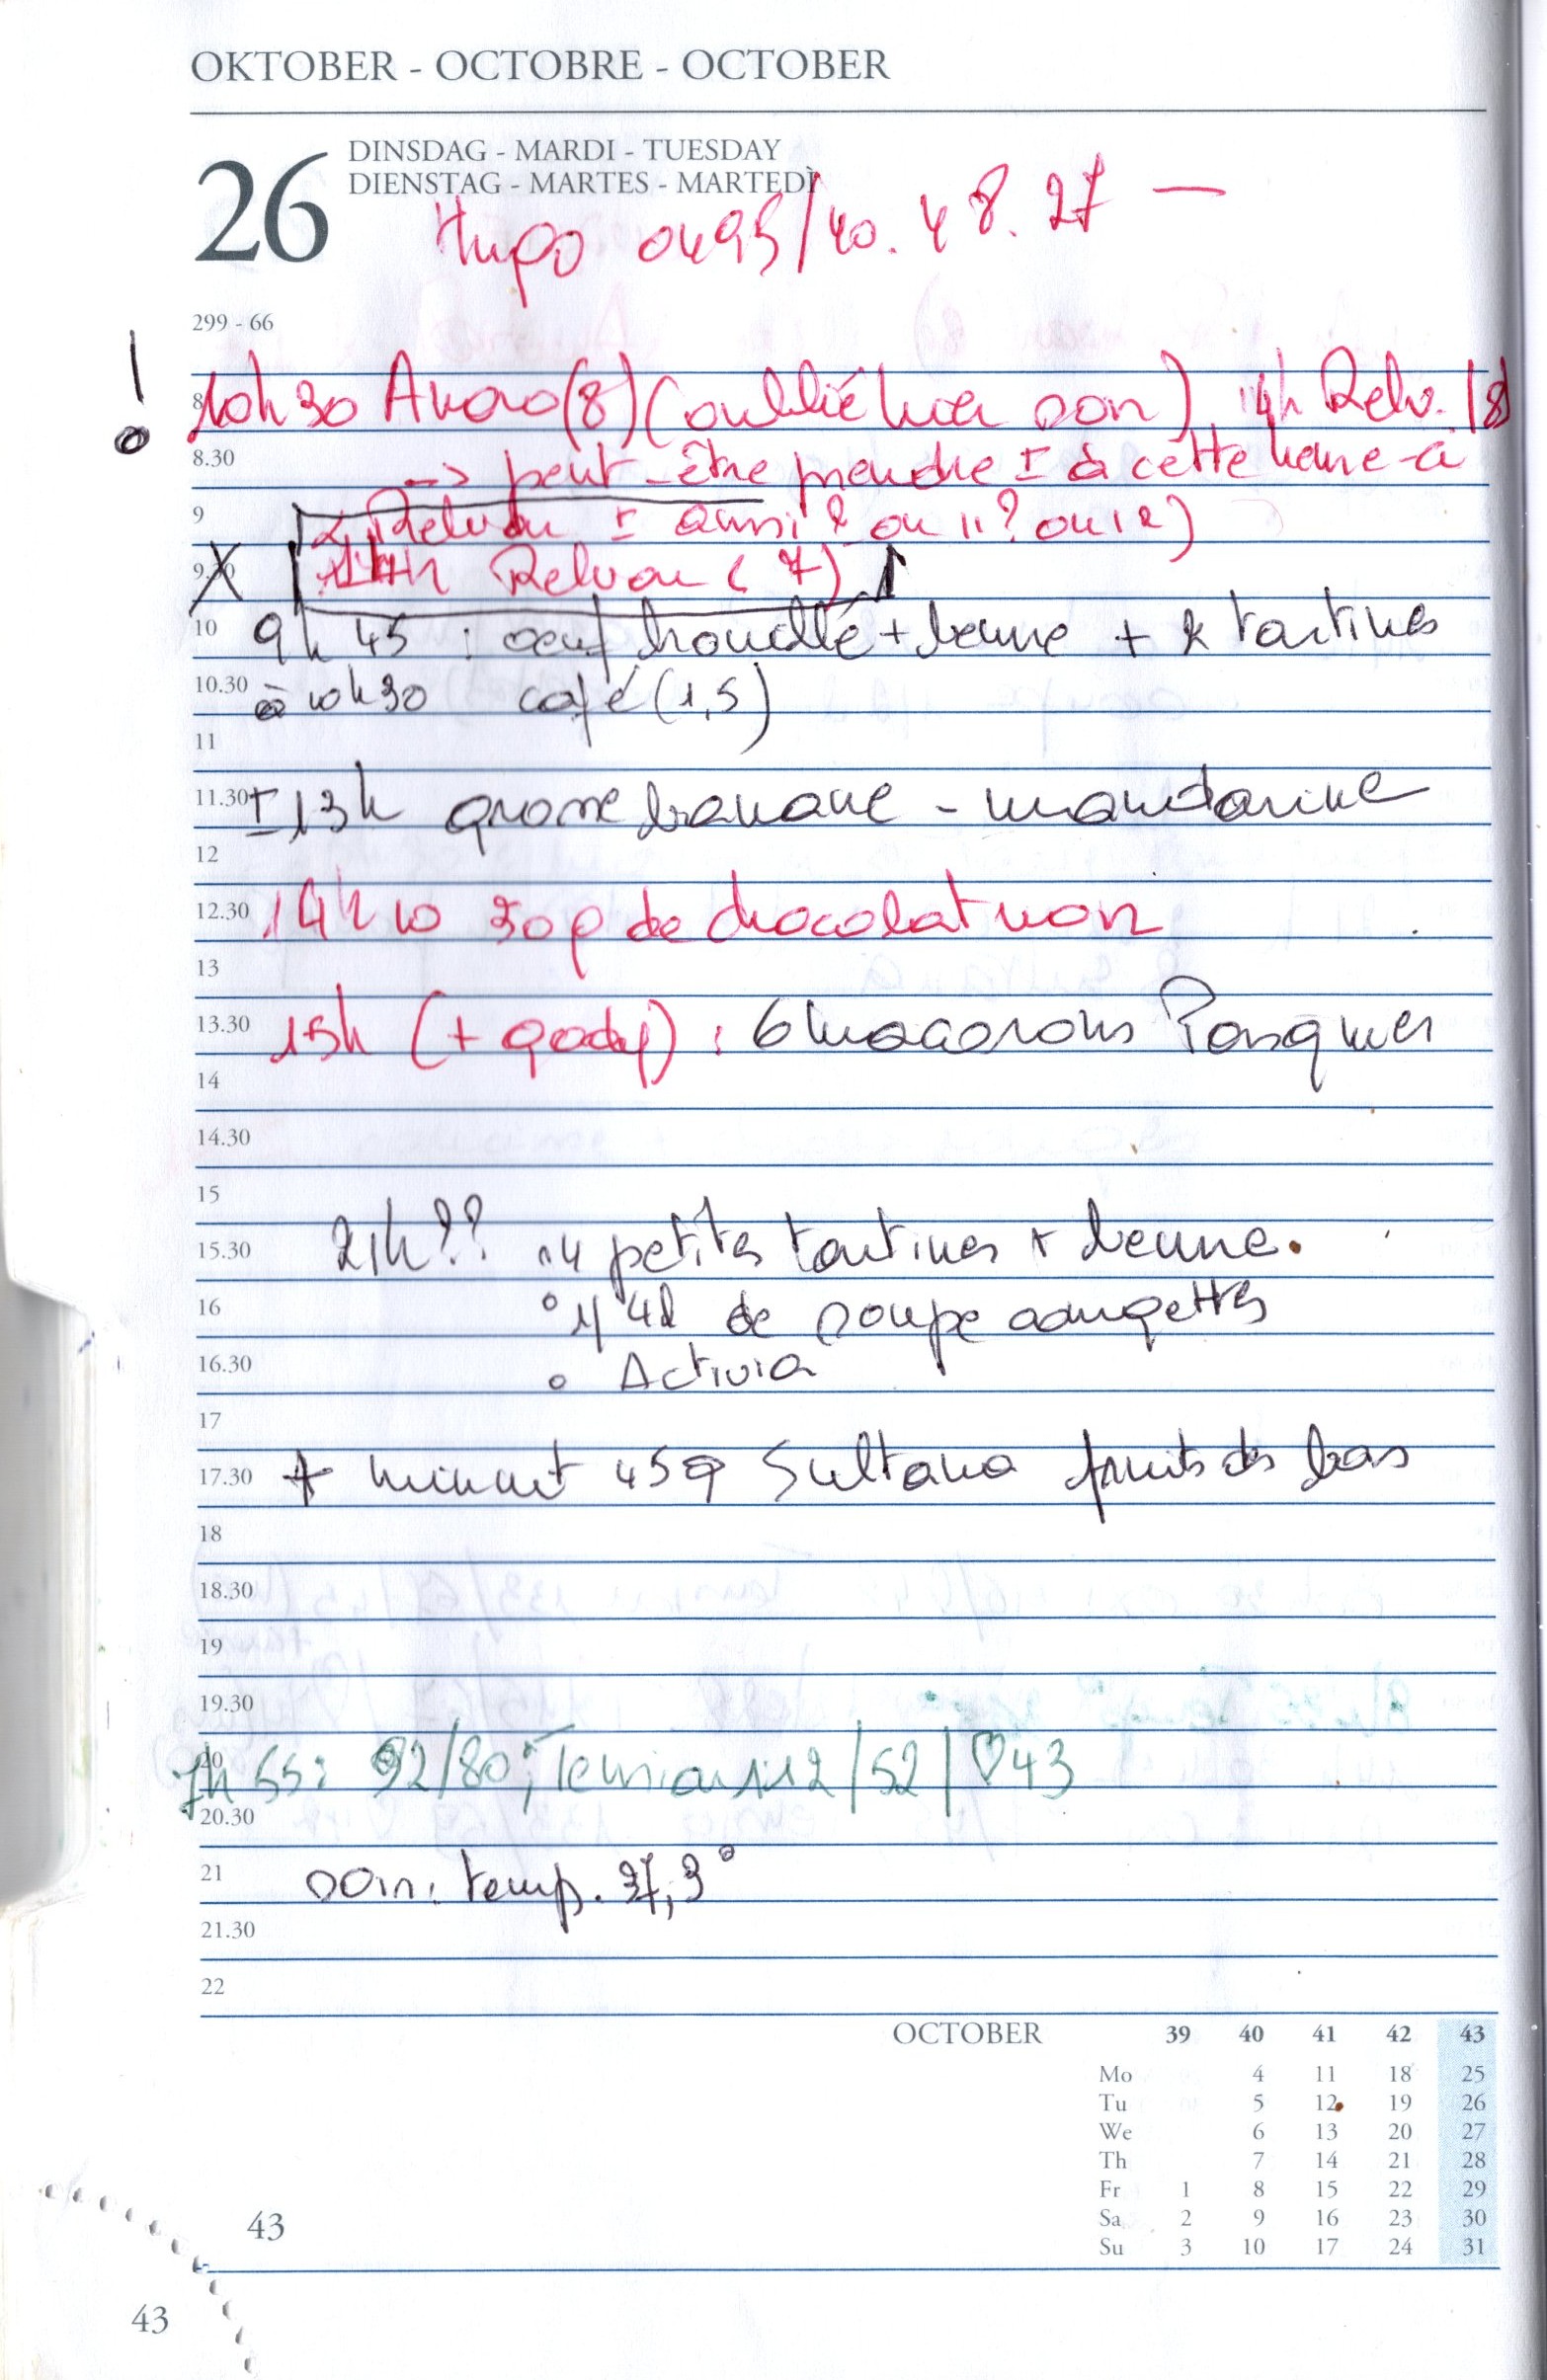 OKTOBER - OCTOBRE - OCTOBER
26
DINSDAG - MARDI - TUESDAY
DIENSTAG - MARTES - MARTEDÌ
Hugo 0495/40.48.27 —
299 - 66
!
8 10h30 (8) (oublié hier soir) 14h Relv. (8)
8.30 -> peut-être prendre ± à cette heure-ci
9 Relvar ± ainsi? ou 11? ou 12)
9.30 X 14h Relvar (7)
10 9h45 : oeuf brouillé + beurre + 2 tartines
10.30 à 10h30 café (1,5)
11
11.30 ± 13h grosse banane - mandarine
12
12.30 14h10 30g de chocolat noir
13
13.30 15h (+ gady) : 6 macarons Pasquier
14
14.30
15
15.30 21h?? 4 petites tartines + beurre.
16 ° 1/4l de soupe courgettes
16.30 ° Activia
17
17.30 + minuit 45g Sultana fruits des bas
18
18.30
19
19.30
20 7h55: 92/80; Tension 112/52/♡43
20.30
21 soir: temp. 37,3°
21.30
22
OCTOBER 39 40 41 42 43
Mo 4 11 18 25
Tu 5 12 19 26
We 6 13 20 27
Th 7 14 21 28
Fr 1 8 15 22 29
Sa 2 9 16 23 30
Su 3 10 17 24 31
43
43